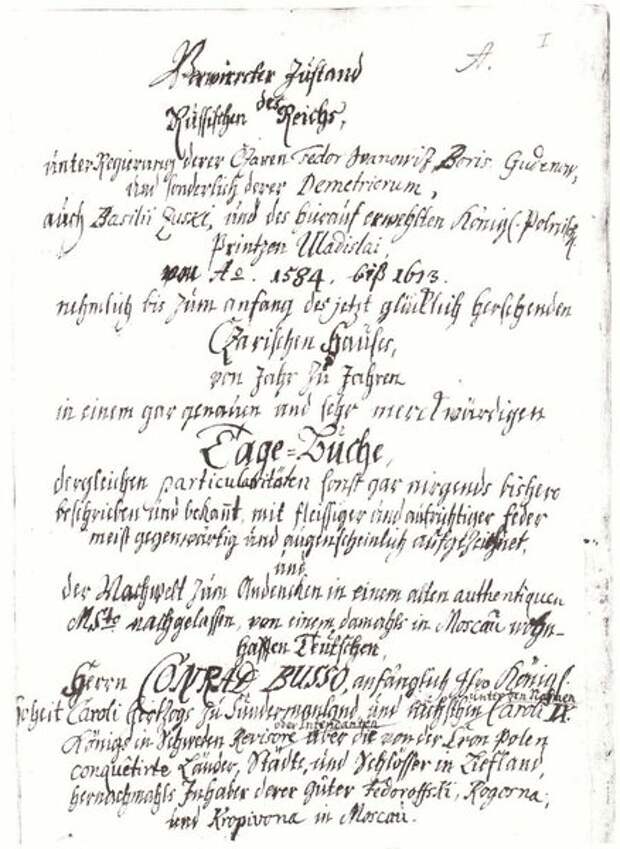 A. I
Verwirreter Zustand
des
Rüssischen Reichs,
unter Regierung derer Czaren Fedor Ivanowitz, Boris Gudenow,
und sonderlich derer Demetriorum,
auch Basilii Zuski, und des hierauf erwehlten Königl. Polnisch
Printzen Uladislai,
von Ao. 1584. biß 1613.
nehmlich bis zum anfang des jetzt glücklich herschenden
Czarischen Hauses,
von Jahr zu Jahren
in einem gar genauen und sehr merckwürdigen
Tage=Buche,
dergleichen particularitäten sonst gar nirgends bishero
beschrieben und bekant, mit fleissiger und aufrichtiger feder
meist gegenwärtig und augenscheinlich aufgezeichnet,
und
der Nachwelt zum Andencken in einem alten authentiquen
MSto nachgelassen, von einem damahls in Moscau wohn-
hafften Teutschen,
Herrn CONRAD BUSSO, anfänglich Ihro Königl.
unter den Nahmen
Hoheit Caroli Hertzogs zu Südermanland, und Caroli IX.
oder Intendanten
Königs in Schweden Revisore über die von der Cron Polen
conquetirte Länder, Städte, und Schlösser in Liefland,
hernachmahls Inhaber derer Güter Fedoroffski, Rogosna,
und Kropivona in Moscau.